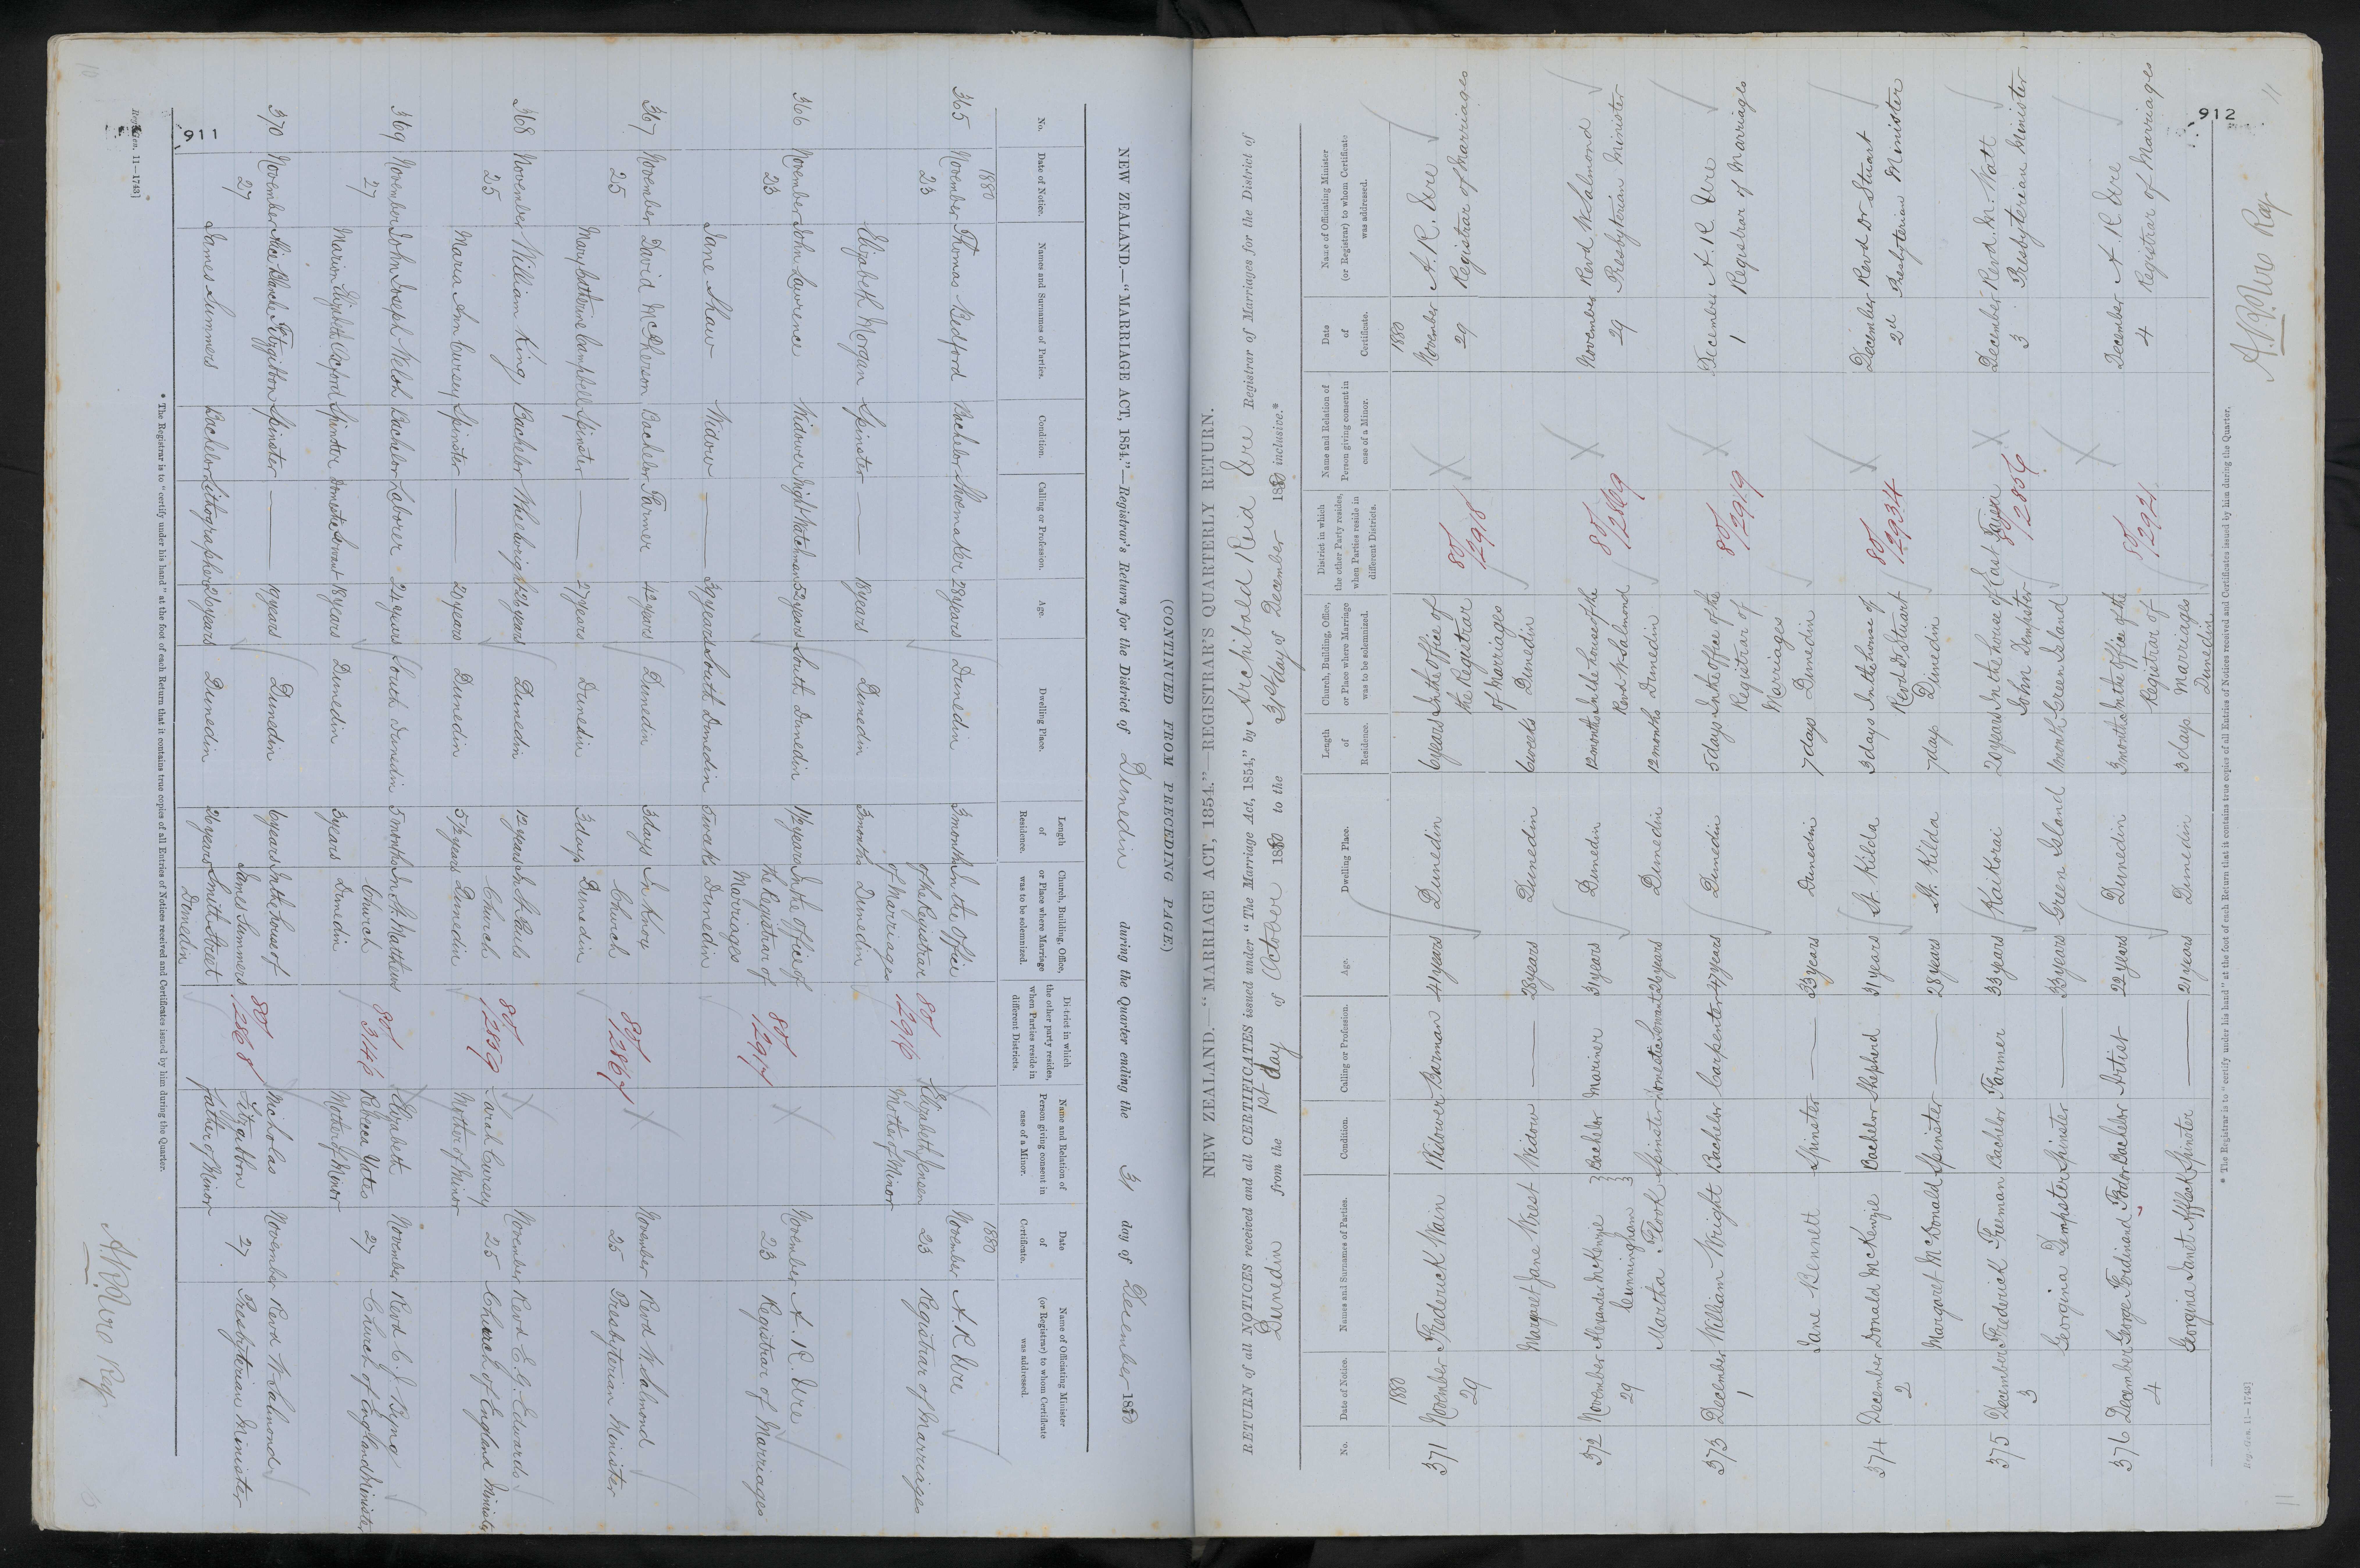 (CONTINUED FROM PRECEDING PAGE)
NEW ZEALAND.—"MARRIAGE ACT, 1854."—Registrar's Return for the District of Dunedin during the Quarter ending the 31 day of December 1880
No. Date of Notice. Names and Surnames of Parties. Condition. Calling or Profession. Age. Dwelling Place. Length of Residence. Church, Building, Office, or Place where Marriage was to be solemnized. District in which the other party resides, when Parties reside in different Districts. Name and Relation of Person giving consent in case of a Minor. Date of Certificate. Name of Officiating Minister (or Registrar) to whom Certificate was addressed.
1880 1880
365 November Thomas Bedford Bachelor Shoemaker 28 years Dunedin 3 months In the Office 80/ Elizabeth Jensen November A. R. Ure
23 of the Registrar 12916 Mother of Minor 23 Registrar of Marriages
of Marriages
Elizabeth Morgan Spinster — 18 years Dunedin 3 months Dunedin
366 November John Lawrence Widower Night Watchman 52 years South Dunedin 1½ years In the Office of 80/ X November A. R. Ure
23 the Registrar of 12917 23 Registrar of Marriages
Marriages
Jane Shaw Widow — 39 years South Dunedin 5 weeks Dunedin
367 November David McPherson Bachelor Farmer 42 years Dunedin 3 days In Knox 80/ X November Revd W. Salmond
25 Church 12867 25 Presbyterian Minister
Mary Catherine Campbell Spinster — 27 years Dunedin 3 days Dunedin
368 November William King Bachelor Wheelwright 26 years Dunedin 12 years In St. Pauls 80/ X November Revd E. G. Edwards
25 Church 12859 Sarah Cursey 25 Church of England Minister
Maria Ann Cursey Spinster — 20 years Dunedin 5½ years Dunedin Mother of Minor
369 November John Joseph Welsh Bachelor Laborer 24 years South Dunedin 5 months In St. Matthews 80/ Elizabeth November Revd C. J. Byng
27 Church 3146 Rebecca Yates 27 Church of England Minister
Marion Elizabeth Oxford Spinster Domestic Servant 18 years Dunedin 3 years Dunedin Mother of Minor
370 November Alice Blanche Fitzgibbon Spinster — 19 years Dunedin 6 years In the house of 80/ Nicholas November Revd W. Salmond
27 James Summers 12868 Fitzgibbon 27 Presbyterian Minister
James Summers Bachelor Lithographer 26 years Dunedin 26 years Smith Street Father of Minor
Dunedin
911
* The Registrar is to "certify under his hand" at the foot of each Return that it contains true copies of all Entries of Notices received and Certificates issued by him during the Quarter.
Reg.-Gen. 11—1743]
A. R. Ure Reg.
10
NEW ZEALAND.—"MARRIAGE ACT, 1854."—REGISTRAR'S QUARTERLY RETURN.
RETURN of all NOTICES received and all CERTIFICATES issued under "The Marriage Act, 1854," by Archibald Reid Ure Registrar of Marriages for the District of
Dunedin from the 1st day of October 1880 to the 31st day of December 1880 inclusive.*
No. Date of Notice. Names and Surnames of Parties. Condition. Calling or Profession. Age. Dwelling Place. Length of Residence. Church, Building, Office, or Place where Marriage was to be solemnized. District in which the other Party resides, when Parties reside in different Districts. Name and Relation of Person giving consent in case of a Minor. Date of Certificate. Name of Officiating Minister (or Registrar) to whom Certificate was addressed.
1880 1880
371 November Frederick Wain Widower Barman 41 years Dunedin 6 years In the Office of 80/ X November A. R. Ure
29 the Registrar 12918 29 Registrar of Marriages
of Marriages
Margaret Jane West Widow — 28 years Dunedin 6 weeks Dunedin
372 November Alexander McKenzie Bachelor Mariner 31 years Dunedin 12 months In the house of the 80/ X November Revd W. Salmond
29 Cunningham Revd W. Salmond 12869 29 Presbyterian Minister
Martha Flook Spinster Domestic Servant 26 years Dunedin 12 months Dunedin
373 December William Wright Bachelor Carpenter 47 years Dunedin 5 days In the office of the 80/ X December A. R. Ure
1 Registrar of 12919 1 Registrar of Marriages
Marriages
Jane Bennett Spinster — 33 years Dunedin 7 days Dunedin
374 December Donald McKenzie Bachelor Shepherd 31 years St. Kilda 3 days In the house of 80/ X December Revd Dr Stuart
2 Revd Dr Stuart 12934 2d Presbyterian Minister
Margaret McDonald Spinster — 28 years St. Kilda 7 days Dunedin
375 December Frederick Freeman Bachelor Farmer 33 years Kaikorai 20 years In the house of East Taieri X December Revd. M. Watt
3 John Dempster 80/ 12856 3 Presbyterian Minister
Georgina Dempster Spinster — 33 years Green Island 1 month Green Island
376 December George Ferdinand Fodor Bachelor Artist 22 years Dunedin 3 months In the Office of the 80/ X December A. R. Ure
4 Registrar of 12921 4 Registrar of Marriages
Georgina Janet Affleck Spinster — 21 years Dunedin 3 days Marriages
Dunedin
* The Registrar is to "certify under his hand" at the foot of each Return that it contains true copies of all Entries of Notices received and Certificates issued by him during the Quarter.
Reg.-Gen. 11—1743]
912
A. R. Ure Reg.
11